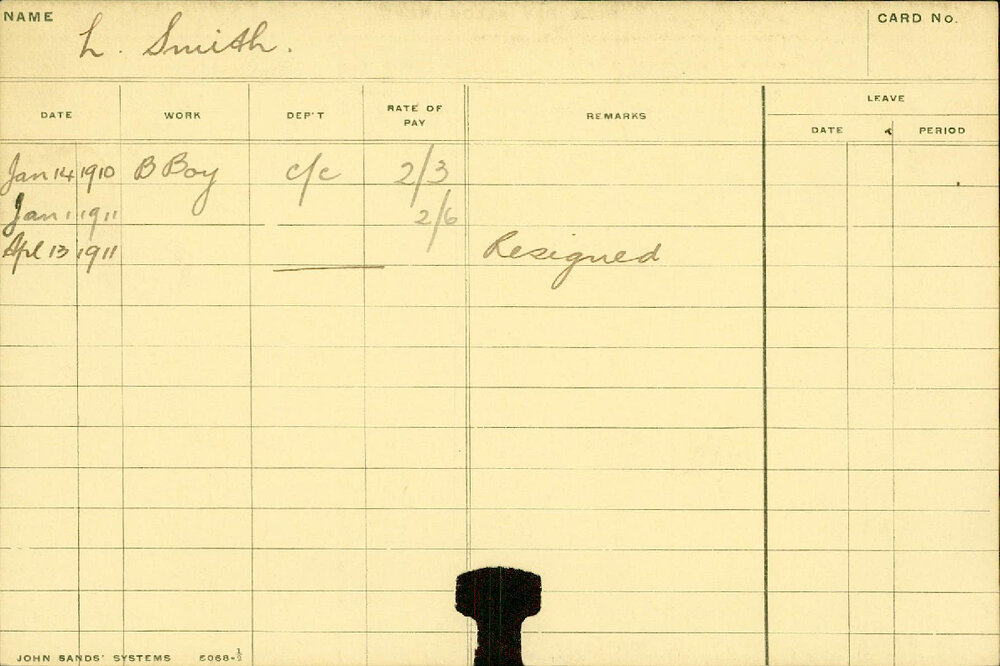 NAME L. Smith. CARD No.
LEAVE
DATE WORK DEP'T RATE OF PAY REMARKS DATE PERIOD
Jan 14 1910 B Boy c/c 2/3
Jan 1 1911 2/6
Apl 13 1911 Resigned
JOHN SANDS' SYSTEMS 5068-½